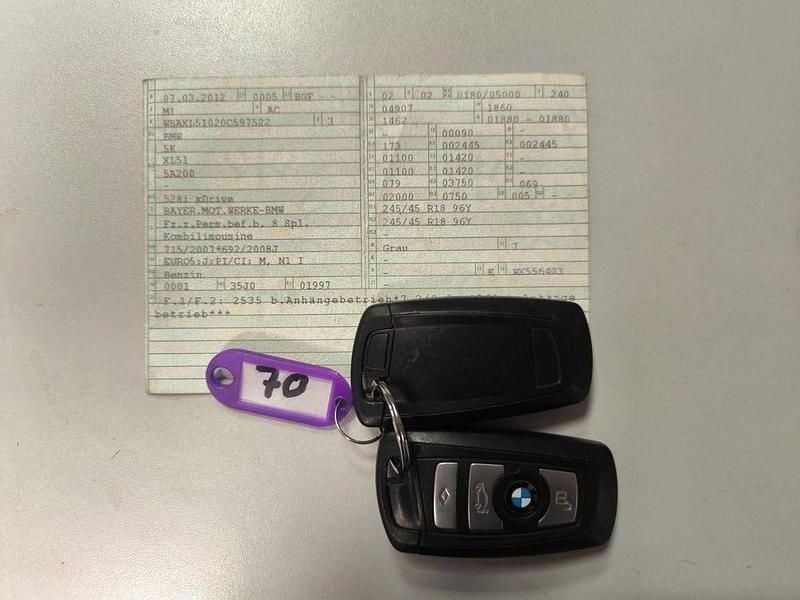 07.03.2012 0005 BGF - -
M1 AC
WBAXL51020C597522 3
BMW
5K
XL51
5A200
-
528i xDrive
BAYER.MOT.WERKE-BMW
Fz.z.Pers.bef.b. 8 Spl.
Kombilimousine
715/2007*692/2008J
EURO5;J;PI/CI; M, N1 I
Benzin
0001 35J0 01997
02 02 0180/05000 240
04907 1860
1462 01880 - 01880
- 00090 -
173 002445 002445
01100 01420 -
01100 01420 -
079 03750 069
02000 0750 005 -
245/45 R18 96Y
245/45 R18 96Y
-
Grau 7
-
- E WX556403
-
F.1/F.2: 2535 b.Anhängebetrieb*
betrieb***
70